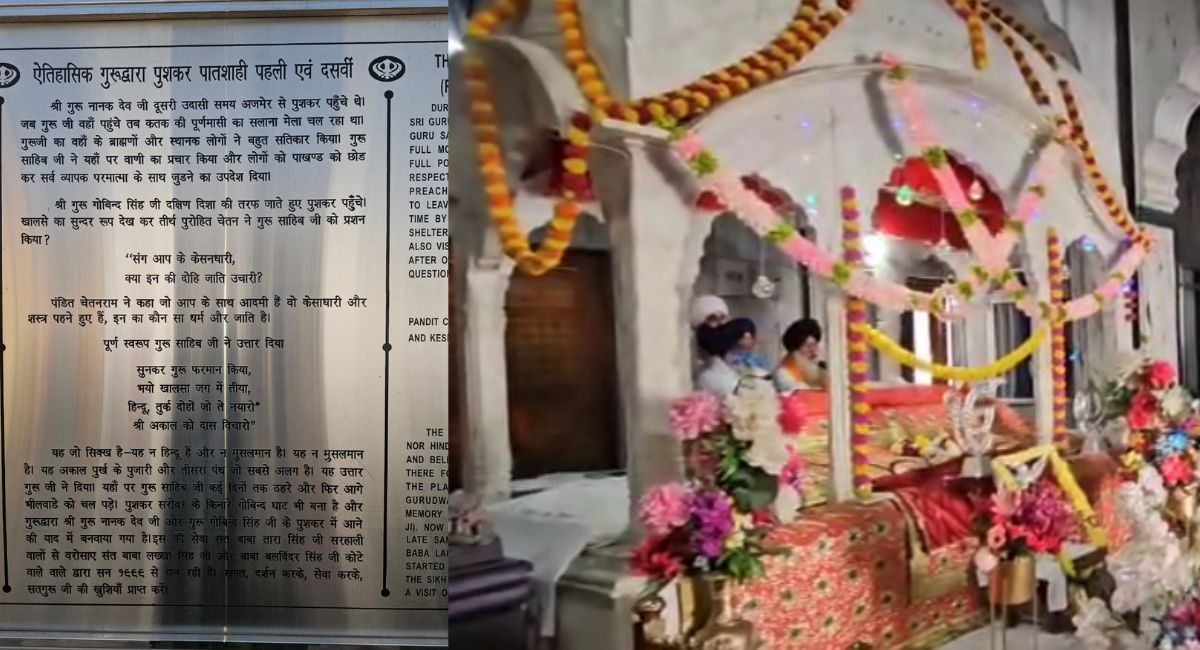 ऐतिहासिक गुरूद्वारा पुशकर पातशाही पहली एवं दसवीं
श्री गुरू नानक देव जी दूसरी उदासी समय अजमेर से पुशकर पहुँचे थे।
जब गुरू जी वहाँ पहुंचे तब कतक की पूर्णमासी का सलाना मेला चल रहा था।
गुरूजी का वहाँ के ब्राह्मणों और स्थानक लोगों ने बहुत सतिकार किया। गुरू
साहिब जी ने यहाँ पर वाणी का प्रचार किया और लोगों को पाखण्ड को छोड
कर सर्व व्यापक परमात्मा के साथ जुडने का उपदेश दिया।
श्री गुरू गोबिन्द सिंह जी दक्षिण दिशा की तरफ जाते हुए पुशकर पहुँचे।
खालसे का सुन्दर रूप देख कर तीर्थ पुरोहित चेतन ने गुरू साहिब जी को प्रशन
किया ?
“संग आप के केसनधारी,
क्या इन की दोहि जाति उचारी?
पंडित चेतनराम ने कहा जो आप के साथ आदमी हैं वो केसाधारी और
शस्त्र पहने हुए हैं, इन का कौन सा धर्म और जाति है।
पूर्ण स्वरूप गुरू साहिब जी ने उत्तार दिया
सुनकर गुरू फरमान किया,
भयो खालसा जग में तीया,
हिन्दू, तुर्क दोहों जो ते नयारो”
श्री अकाल को दास विचारो”
यह जो सिक्ख है-यह न हिन्दू हैं और न मुसलमान है। यह न मुसलमान
है। यह अकाल पुर्ख के पुजारी और तीसरा पंथ जो सबसे अलग है। यह उत्तार
गुरू जी ने दिया। यहाँ पर गुरू साहिब जी कई दिनों तक ठहरे और फिर आगे
भीलवाडे को चल पड़े। पुशकर सरोवर के किनारे गोबिन्द घाट भी बना है और
गुरूद्वारा श्री गुरू नानक देव जी और गुरू गोबिन्द सिंह जी के पुशकर में आने
की याद में बनवाया गया है।इस की सेवा संत बाबा तारा सिंह जी सरहाली
वालों से वरोसाए संत बाबा लख्खा सिंह जी और बाबा बलविंदर सिंह जी कोटे
वाले वाले द्वारा सन १९९९ से चल रही है। संगत, दर्शन करके, सेवा करके,
सतगुरू जी की खुशियाँ प्राप्त करें।
TH
(F
DUR
SRI GURU
GURU SA
FULL MO
FULL PO
RESPECT
PREACH
TO LEAV
TIME BY
SHELTER
ALSO VIS
AFTER O
QUESTION
PANDIT C
AND KES
THE
NOR HIND
AND BEL
THERE FO
THE PLA
GURUDWA
MEMORY
JI). NOW
LATE SAN
BABA LA
STARTED
THE SIKH
A VISIT O